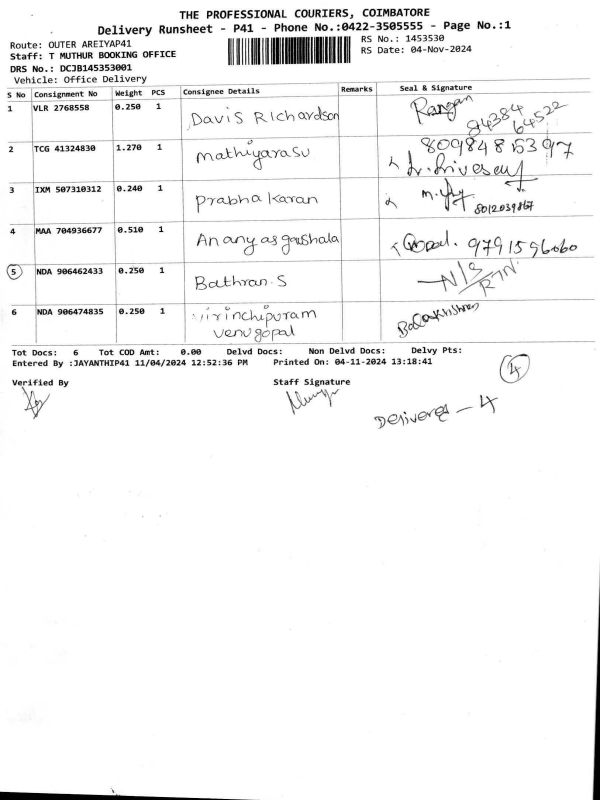 THE PROFESSIONAL COURIERS, COIMBATORE
Delivery Runsheet - P41 - Phone No.:0422-3505555 - Page No.:1
Route: OUTER AREIYAP41
RS No.: 1453530
Staff: T MUTHUR BOOKING OFFICE
RS Date: 04-Nov-2024
DRS No.: DCJB145353001
Vehicle: Office Delivery
S No Consignment No Weight PCS Consignee Details Remarks Seal & Signature
1 VLR 2768558 0.250 1 Davis Richardson Rangan 84384 64522
2 TCG 41324830 1.270 1 mathiyarasu
3 IXM 507310312 0.240 1 prabha karan 8012039867
4 MAA 704936677 0.510 1 Ananyas goushala 9791596060
5 NDA 906462433 0.250 1 Bathran.S N/S RTN
6 NDA 906474835 0.250 1 virinchipuram venugopal Balakrishnan
Tot Docs: 6 Tot COD Amt: 0.00 Delvd Docs: Non Delvd Docs: Delvy Pts:
Entered By :JAYANTHIP41 11/04/2024 12:52:36 PM Printed On: 04-11-2024 13:18:41
4
Verified By Staff Signature
Delivered - 4